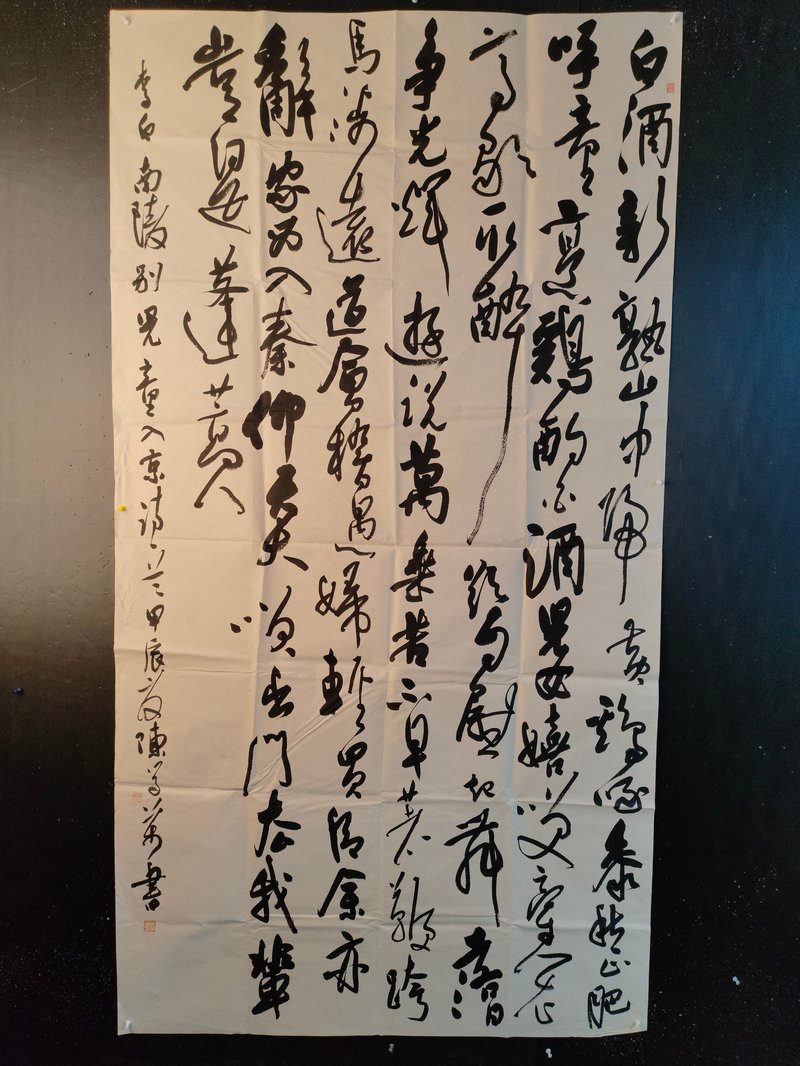 白酒新熟山中歸黃鷄啄黍秋正肥
呼童烹鷄酌白酒兒女嬉笑牽人衣
高歌取醉欲自慰起舞落日
爭光輝遊說萬乘苦不早著鞭跨
馬涉遠道會稽愚婦輕買臣余亦
辭家西入秦仰天大笑出門去我輩
豈是蓬蒿人
李白南陵別兒童入京詩一首甲辰夏陳書